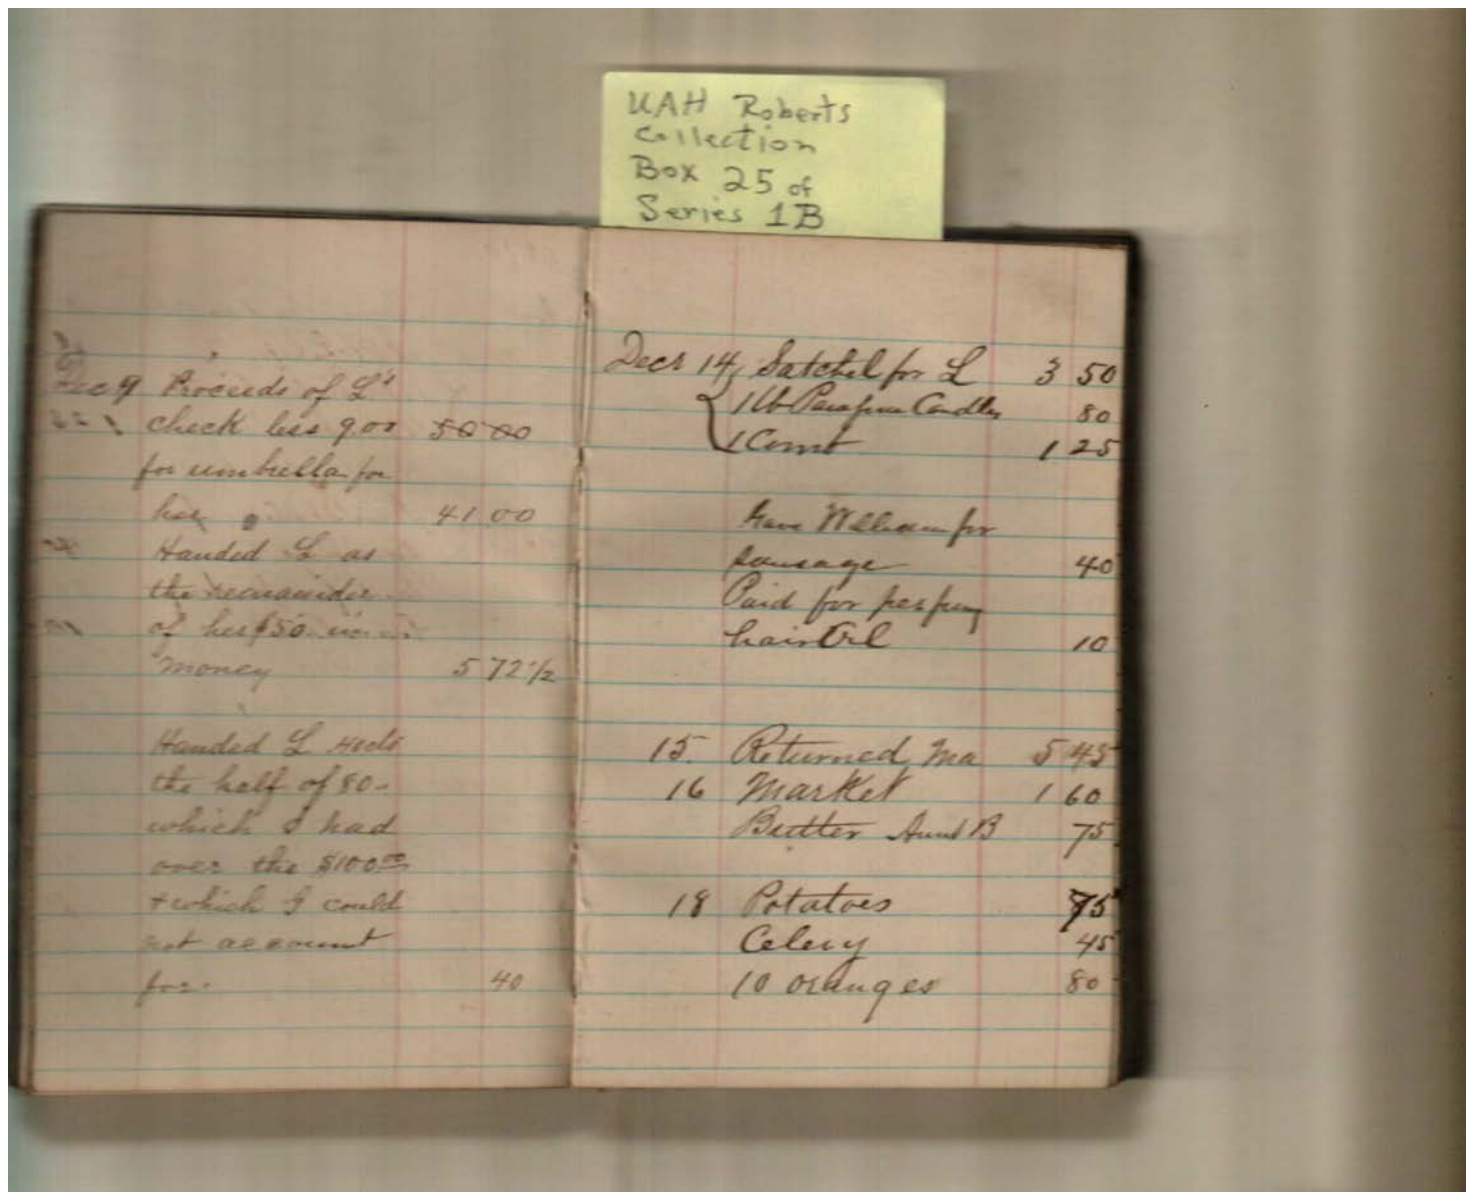 UAH Roberts
Collection
Box 25 of
Series 1B
Dec 9 Proceeds of L's
check less 9 00 50 00
for umbrella for
her 41 00
Handed L as
the remainder
of her $50
money 5 72 1/2
Handed L
the half of 80
which I had
over the $100.00
+ which I could
not account
for. 40
Decr 14, Satchel for L 3 50
1 lb Parafine Candles 80
1 25
Gave William for
sausage 40
Paid for
hair Oil 10
15. Returned Ma 5 45
16 Market 1 60
Butter Aunt B 75
18 Potatoes 75
Celery 45
10 oranges 80